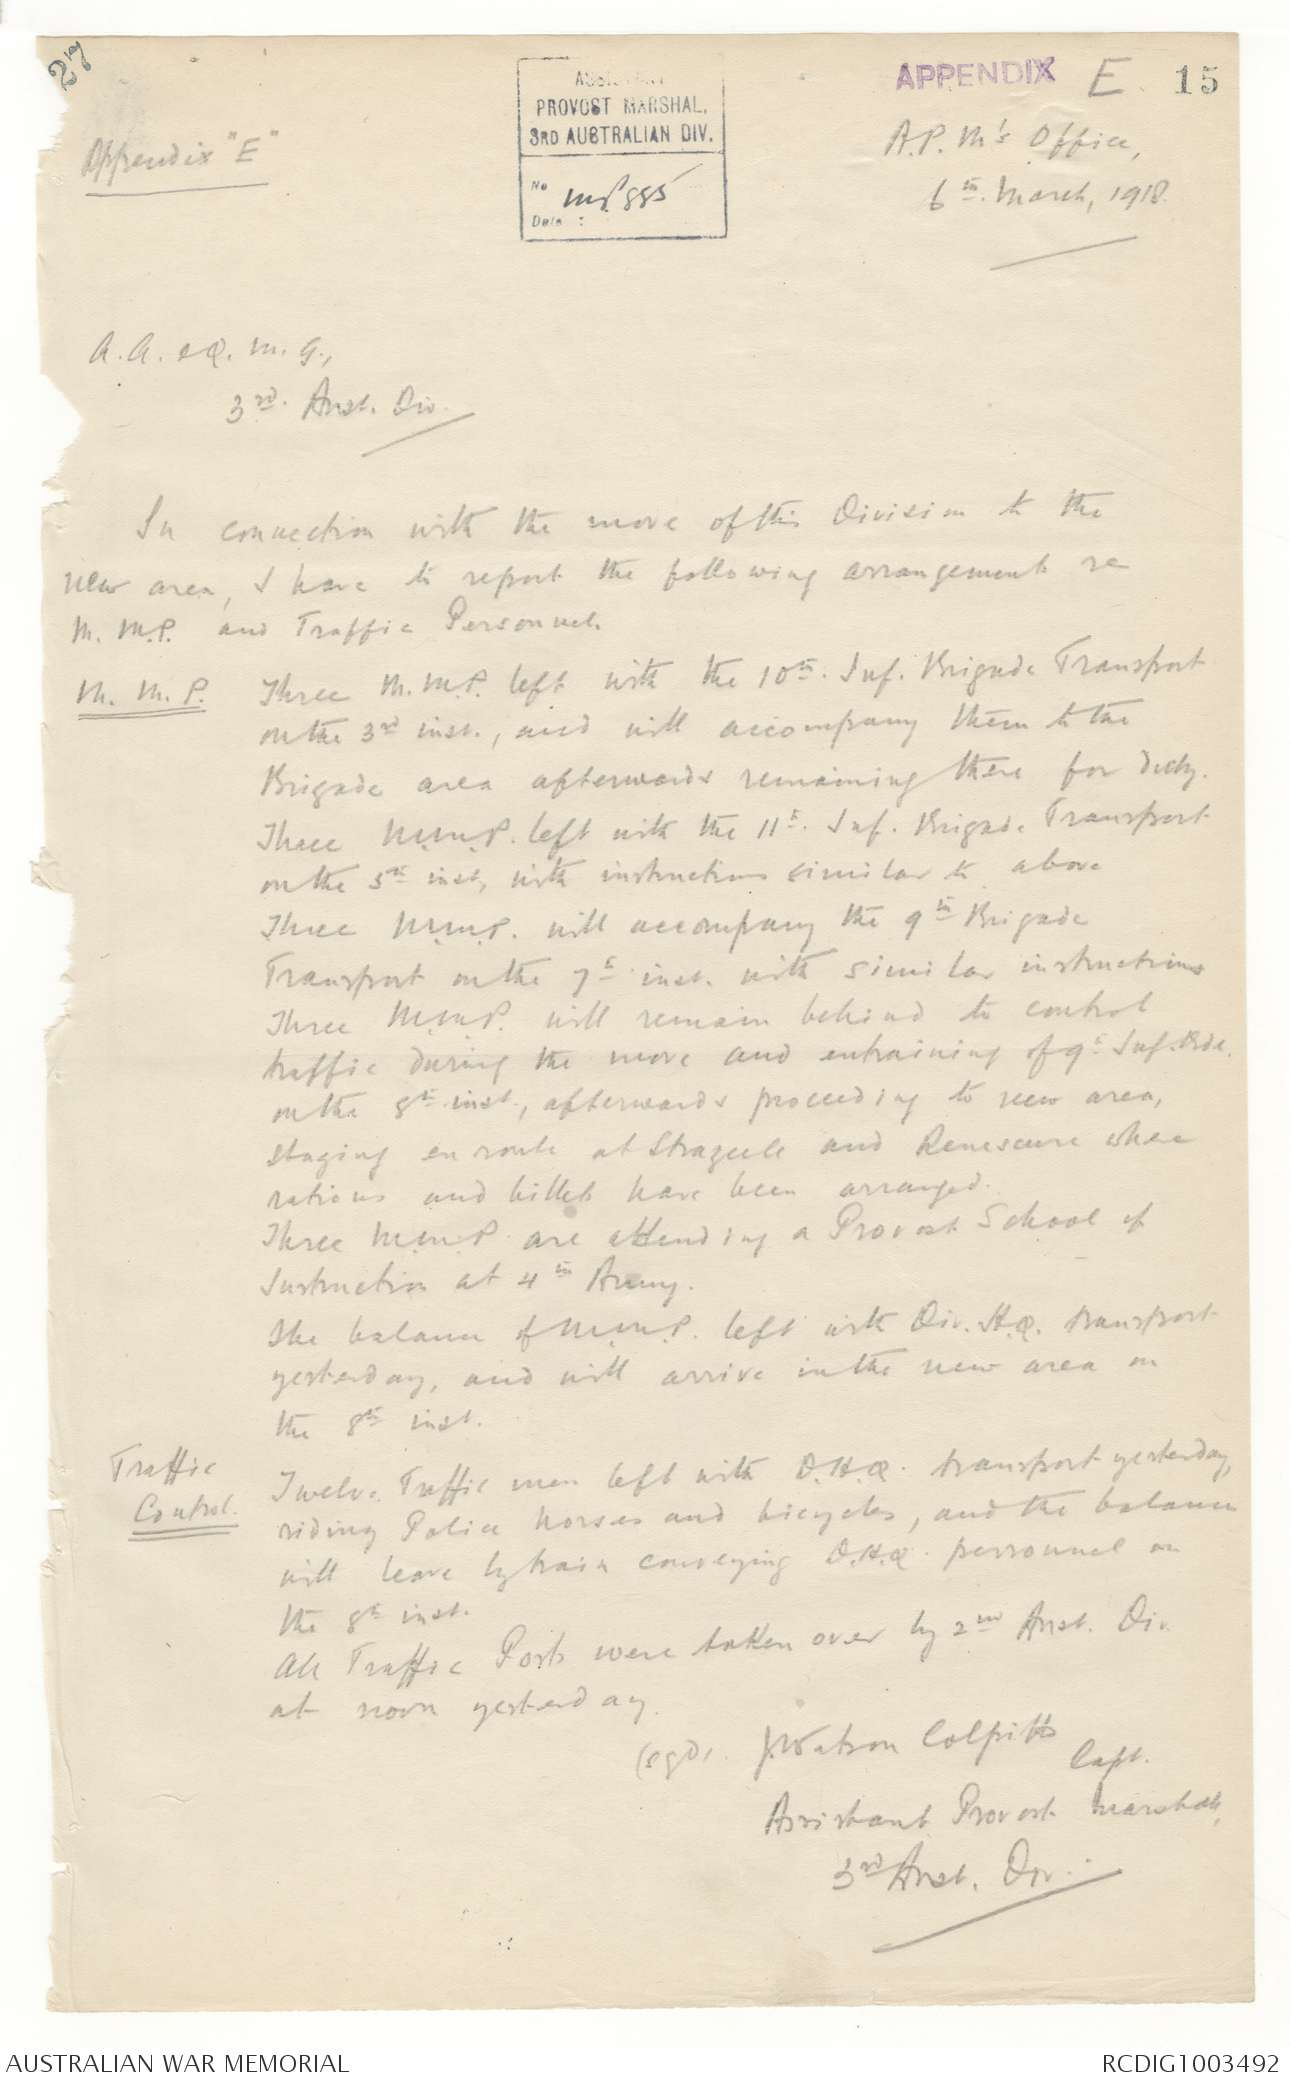 27
APPENDIX E 15
ASSISTANT
PROVOST MARSHAL,
3RD AUSTRALIAN DIV.
No MP885
Date :
Appendix "E"
A.P.M's Office,
6th. March, 1918.
A.A. & Q.M.G.,
3rd. Aust. Div.
In connection with the move of this Division to the
new area, I have to report the following arrangements re
M.M.P. and Traffic Personnel.
M.M.P. Three M.M.P. left with the 10th. Inf. Brigade Transport
on the 3rd inst., and will accompany them to the
Brigade area afterwards remaining there for duty.
Three M.M.P. left with the 11th. Inf. Brigade Transport
on the 5th inst, with instructions similar to above
Three M.M.P. will accompany the 9th Brigade
Transport on the 7th inst. with similar instructions
Three M.M.P. will remain behind to control
traffic during the move and entraining of 9th Inf. Bde.
on the 8th inst., afterwards proceeding to new area,
staging en route at Strazeele and Renescure where
rations and billets have been arranged.
Three M.M.P. are attending a Provost School of
Instruction at 4th Army.
The balance of M.M.P. left with Div. H.Q. transport
yesterday, and will arrive in the new area on
the 8th inst.
Traffic
Control. Twelve Traffic men left with D.H.Q. transport yesterday,
riding Police horses and bicycles, and the balance
will leave by train conveying D.H.Q. personnel on
the 8th inst.
All Traffic Posts were taken over by 2nd Aust. Div.
at noon yesterday.
(sgd). J.Watson Colpitts Capt.
Assistant Provost Marshal,
3rd Aust. Div.
AUSTRALIAN WAR MEMORIAL
RCDIG1003492